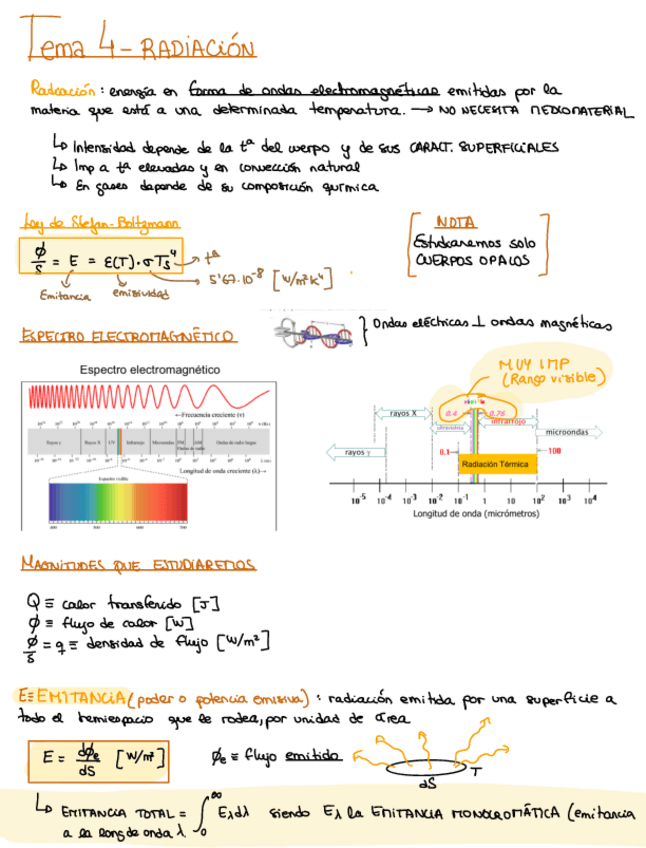 Tema 4 - RADIACIÓN
Radiación: energía en forma de ondas electromagnéticas emitidas por la
materia que está a una determinada temperatura. → NO NECESITA MEDIO MATERIAL
↳ Intensidad depende de la tª del cuerpo y de sus CARACT. SUPERFICIALES
↳ Imp a tª elevadas y en convección natural
↳ En gases depende de su composición química
Ley de Stefan-Boltzmann
NOTA
Estudiaremos solo
CUERPOS OPACOS
ϕ/S = E = ε(T)·σTs⁴ → tª
5'67·10⁻⁸ [W/m²K⁴]
Emitancia emisividad
ESPECTRO ELECTROMAGNÉTICO
Ondas eléctricas ⊥ ondas magnéticas
Espectro electromagnético
←Frecuencia creciente (ν)
Rayos X UV Infrarrojo Microondas FM AM Ondas de radio largas
Ondas de radio
Longitud de onda creciente (λ)→
Espectro visible
400 500 600 700
MUY IMP
(Rango visible)
rayos X 0.4 0.76
ultravioleta infrarrojo
microondas
rayos γ 0.1 100
Radiación Térmica
10⁻⁵ 10⁻⁴ 10⁻³ 10⁻² 10⁻¹ 1 10 10² 10³ 10⁴
Longitud de onda (micrómetros)
MAGNITUDES QUE ESTUDIAREMOS
Q ≡ calor transferido [J]
ϕ ≡ flujo de calor [W]
ϕ/S = q ≡ densidad de flujo [W/m²]
E≡EMITANCIA (poder o potencia emisiva): radiación emitida por una superficie a
todo el hemiespacio que le rodea, por unidad de área
E = dϕe/dS [W/m²] ϕe ≡ flujo emitido
T
dS
↳ EMITANCIA TOTAL = ∫₀^∞ Eλdλ siendo Eλ la EMITANCIA MONOCROMÁTICA (emitancia
a la long de onda λ